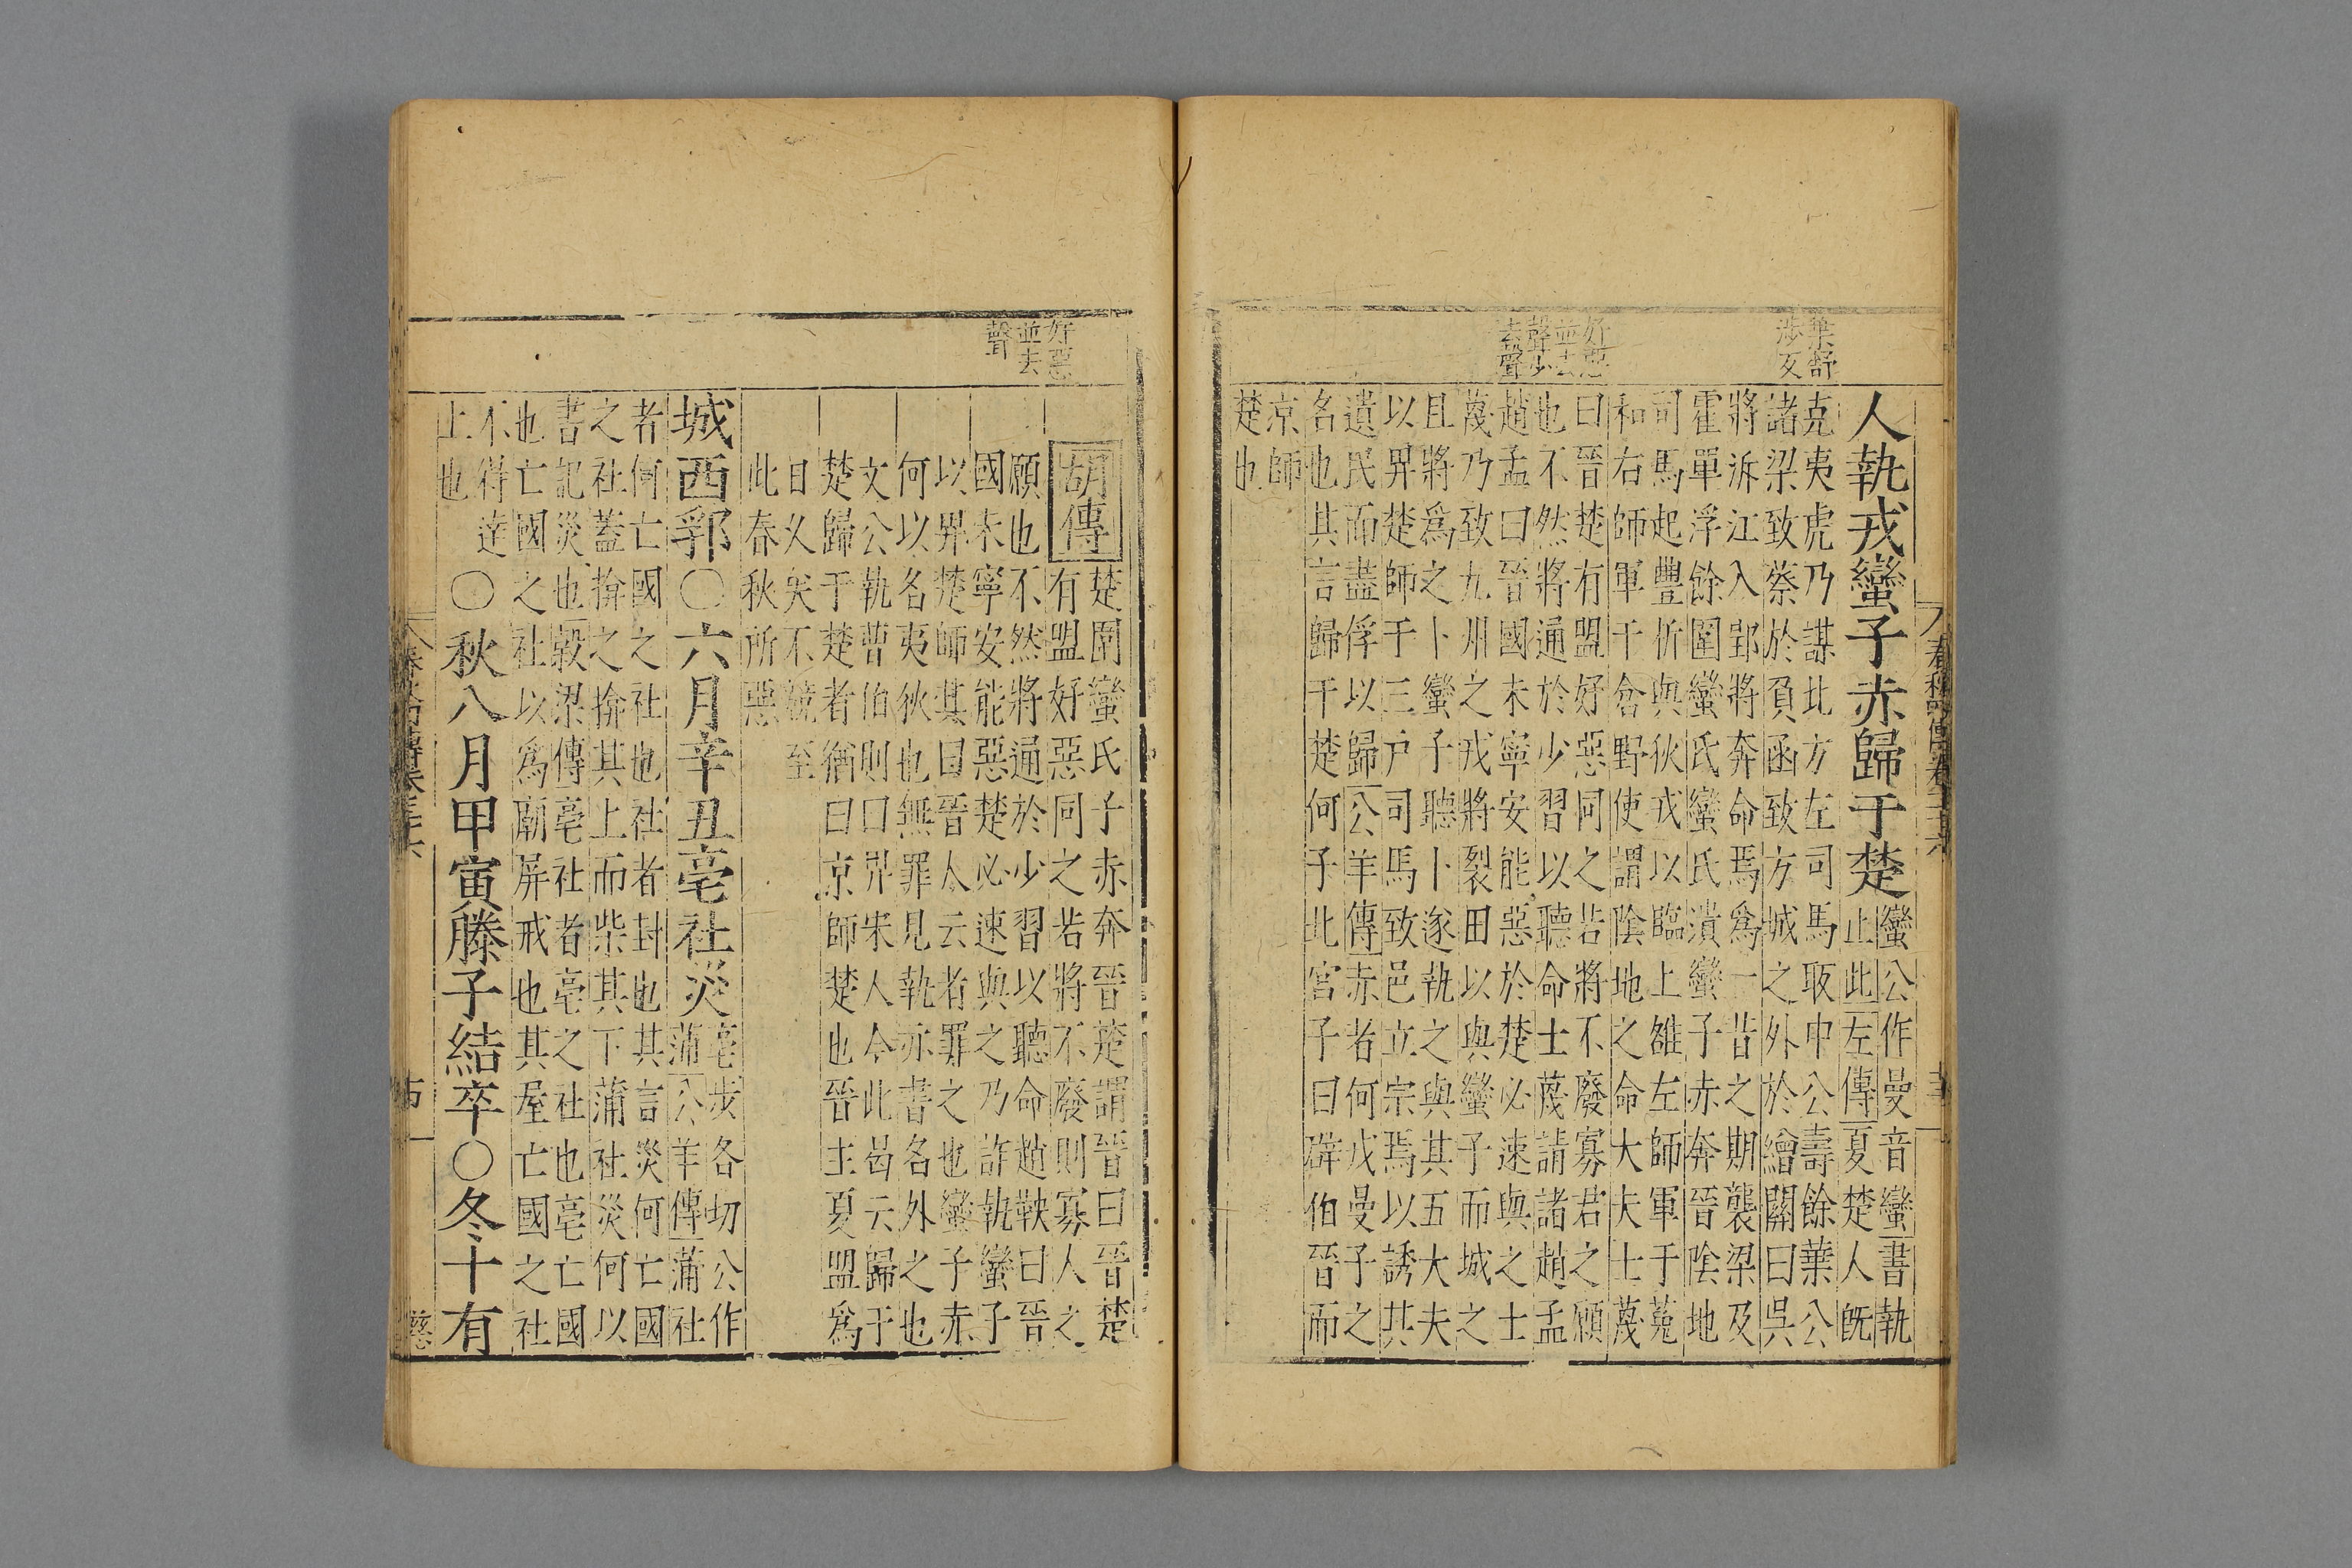 春秋四傳卷三十六
葉舒
涉反
好惡
並去
聲少
去聲
人執戎蠻子赤歸于楚
蠻公作曼音蠻書執
止此左傳夏楚人旣
克夷虎乃謀北方左司馬販申公壽餘葉公
諸梁致蔡於負函致方城之外於繒關曰吳
將泝江入郢將奔命焉爲一昔之期襲梁及
霍單浮餘圍蠻氏蠻氏潰蠻子赤奔晉陰地
司馬起豐析與狄戎以臨上雒左師軍于菟
和右師軍于倉野使謂陰地之命大夫士蔑
曰晉楚有盟好惡同之若將不廢寡君之願
也不然將通於少習以聽命士蔑請諸趙孟
趙孟曰晉國未寧安能惡於楚必速與之士
蔑乃致九州之戎將裂田以與蠻子而城之
且將爲之卜蠻子聽卜遂執之與其五大夫
以畀楚師于三戶司馬致邑立宗焉以誘其
遺民而盡俘以歸公羊傳赤者何戎曼子之
名也其言歸于楚何子北宮子曰辟伯晉而
京師
楚也
好惡
並去
聲
胡傳
楚圍蠻氏子赤奔晉楚謂晉曰晉楚
有盟好惡同之若將不廢則寡人之
願也不然將通於少習以聽命趙鞅曰晉
國未寧安能惡楚必速與之乃詐執蠻子
以畀楚師其曰晉人云者罪之也蠻子赤
何以名夷狄也無罪見執亦書名外之也
文公執曹伯則曰畀宋人今此曷云歸于
楚歸于楚者猶曰京師楚也晉主夏盟爲
日久矣不競至
此春秋所惡
城西郛〇六月辛丑亳社災
亳步各切公作
蒲公羊傳蒲社
者何亡國之社也社者封也其言災何亡國
之社蓋揜之揜其上而柴其下蒲社災何以
書記災也穀梁傳亳社者亳之社也亳亡國
也亡國之社以爲廟屏戒也其屋亡國之社
不得達
上也
〇秋八月甲寅滕子結卒〇冬十有